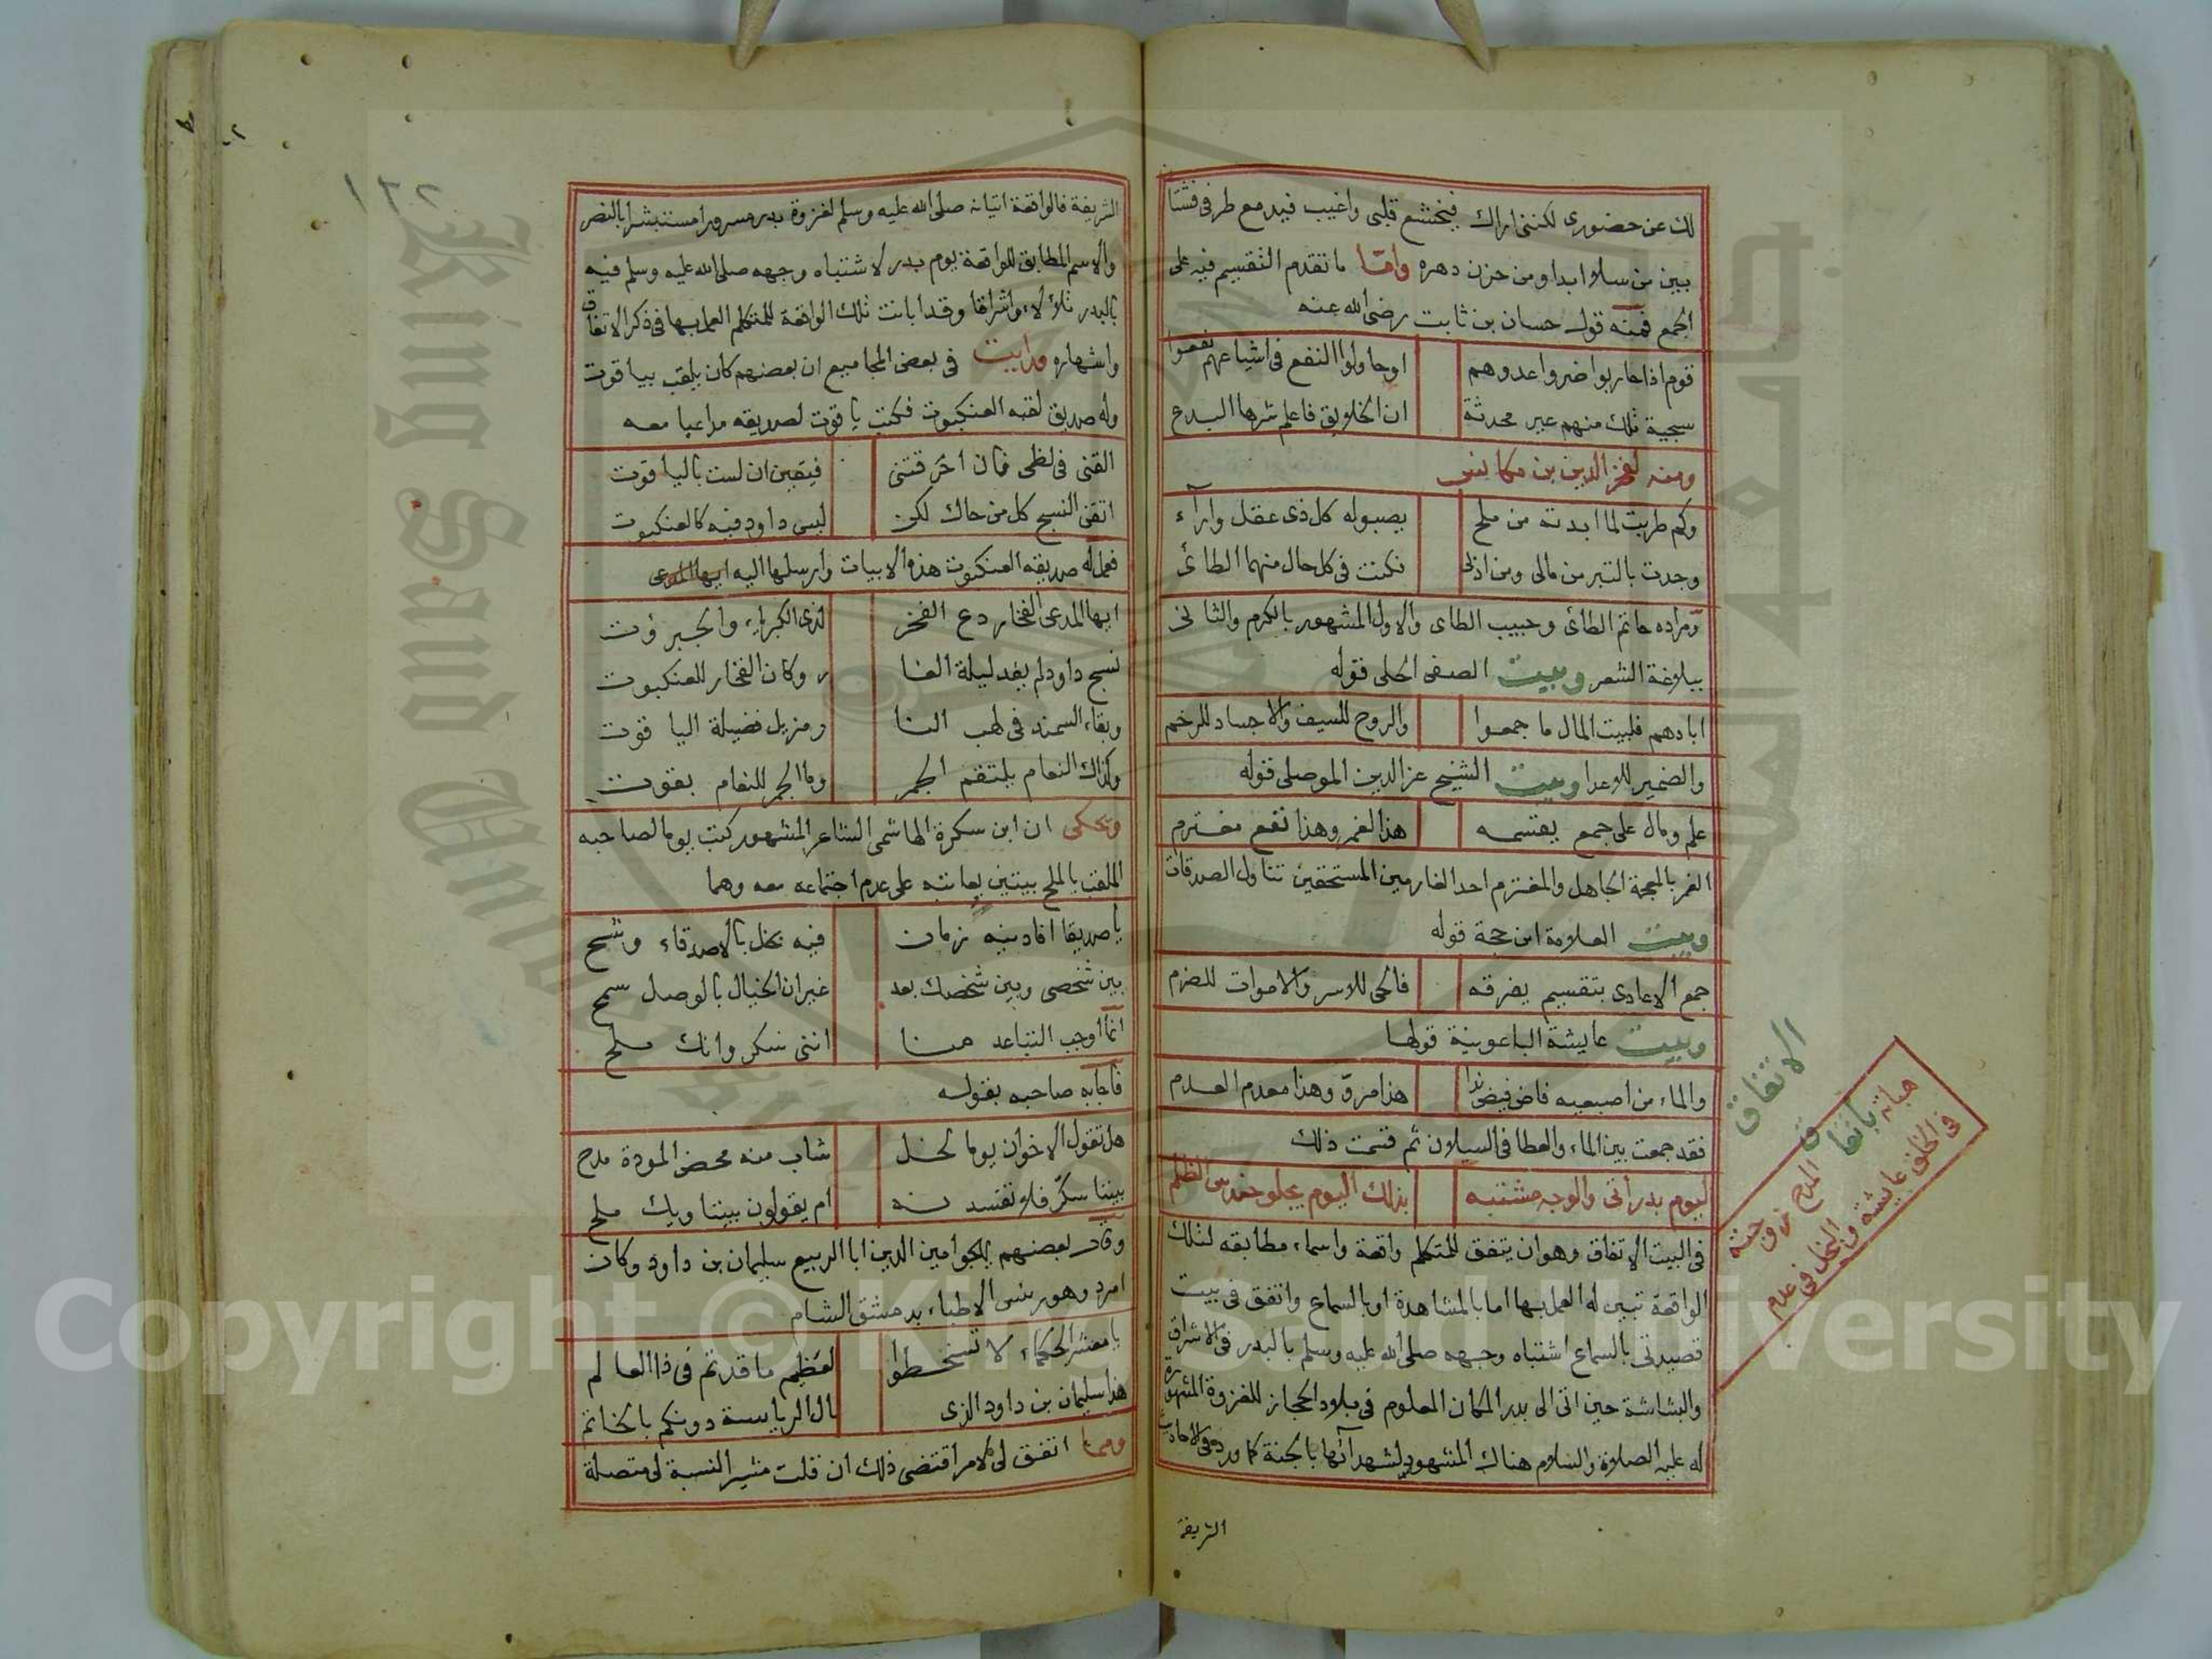 لك عن حضوري لكنني اراك فيخشع قلبي واغيب فيدمع طرفي فشتا
بين من سلا ابدا ومن حزن دهره واما ما تقدم التقسيم فيه على
الجمع فمنه قول حسان بن ثابت رضي الله عنه
قوم اذا حاربوا ضروا عدوهم او حاولوا النفع في اشياعهم نفعوا
سجية تلك منهم غير محدثة ان الخلايق فاعلم شرها البدع
ومنه لفخر الدين بن مكانس
وكم طربت لما ابدته من ملح يصبو له كل ذي عقل وارآء
وجدت بالتبر من مالي ومن ادبي فكنت في كل حال منهما الطائى
ومراده حاتم الطائى وحبيب الطاى والاول المشهور بالكرم والثاني
ببلاغة الشعر وبيت الصفى الحلى قوله
ابادهم فلبيت المال ما جمعوا والروح للسيف والاجساد للرخم
والضمير للاعدا وبيت الشيخ عز الدين الموصلى قوله
علم ومال على جمع يقسمه هذا لغمر وهذا نفع مغترم
الغمر بالمعجمة الجاهل والمغترم احد الغارمين المستحقين تناول الصدقات
وبيت العلامة ابن حجة قوله
جمع الاعادى بتقسيم يفرقه فالحى للاسر والاموات للضرم
وبيت عايشة الباعونية قولها
والماء من اصبعيه فاض فيض ندا هذا مروّ وهذا معدم العدم
فقد جمعت بين الماء والعطا في السيلان ثم قسمت ذلك
ليوم بدر أتى والوجه مشتبه بذلك اليوم يجلو حندس الظلم
في البيت الاتفاق وهو ان يتفق للمتكلم واقعة واسماء مطابقه لتلك
الواقعة تبين له العمل بها اما بالمشاهدة او بالسماع واتفق في بيت
قصيدتى بالسماع اشتباه وجهه صلى الله عليه وسلم بالبدر في الاشراق
والبشاشة حين اتى الى بدر المكان المعلوم في بلاد الحجاز للغزوة المشهورة
له عليه الصلاة والسلام هناك المشهود لشهدائها بالجنة كما ورد في الاحاديث
الشريفة
الاتفاق
الشريفة فالواقعة اتيانه صلى الله عليه وسلم لغزوة بدر مسرورا مستبشرا بالنصر
والاسم المطابق للواقعة يوم بدر لاشتباه وجهه صلى الله عليه وسلم فيه
بالبدر تلألأ واشراقا وقد ابانت تلك الواقعة للمتكلم العمل بها في ذكر الاتفاق
واشهاره ورايت في بعض المجاميع ان بعضهم كان يلقب بياقوت
وله صديق لقبه العنكبوت فكتب ياقوت لصديقه مداعبا معه
القنى في لظى فان احرقتنى فيتقين ان لست بالياقوت
اتقن النسج كل من حاك لكن ليس داود فيه كالعنكبوت
فعمل له صديقه العنكبوت هذه الابيات وارسلها اليه
ايها المدعى الفخار دع الفخر لذى الكبرياء والجبروت
نسج داود لم يفد ليلة الغا ر وكان الفخار للعنكبوت
وبقاء السمند في لهب النا ر مزيل فضيلة الياقوت
وكذاك النعام يلتقم الجمر وما الجمر للنعام بقوت
ويحكى ان ابن سكرة الهاشمى الشاعر المشهور كتب يوما لصاحبه
الملقب بالملح ببيتين يعاتبه على عدم اجتماعه معه وهما
يا صديقا افادنيه زمان فيه بخل بالاصدقاء وشح
بين شخصى وبين شخصك بعد غير ان الخيال بالوصل سمح
انما اوجب التباعد منا اننى سكر وانك ملح
فاجابه صاحبه بقوله
هل تقول الاخوان يوما لخل شاب منه محض المودة مدح
بيننا سكر فلا تفسدنه ام يقولون بيننا ويك ملح
وقال بعضهم يهجو امين الدين ابا الربيع سليمان بن داود وكان
امرد وهو رئيس الاطباء بدمشق الشام
يا معشر الحكماء لا تسخطوا لعظيم ما قدتم في ذا العالم
هذا سليمان بن داود الذى نال الرياسة دونكم بالخاتم
ومما اتفق لى لامر اقتضى ذلك ان قلت مشير النسبة لى متصلة
١٢٢